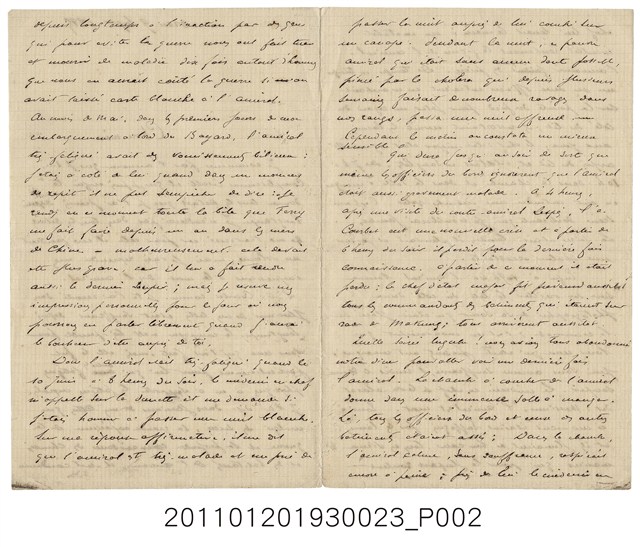 depuis longtemps à l'inaction par des gens
qui pour éviter la guerre nous ont fait tuer
et mourir de maladie dix fois autant d'hommes
que nous en aurait coûté la guerre si on
avait laissé carte blanche à l'amiral.
Au mois de Mai, dans les premiers jours de mon
embarquement à bord du Bayard, l'amiral
très fatigué avait des vomissements bilieux :
j'étais à côté de lui quand dans un moment
de répit il ne put s'empêcher de dire : ils
rendu en ce moment toute la bile que Ferry
m'a fait faire depuis un an dans les mers
de Chine. malheureusement cela devait
être plus grave, car il lui a fait rendre
aussi le dernier soupir ; mais je réserve mes
impressions personnelles pour le jour où nous
pourrons en parler librement quand j'aurai
le bonheur d'être auprès de toi.
Donc l'amiral était très fatigué quand le
10 juin à 8 heures du soir, le médecin en chef
m'appelle sur la dunette et me demande si
j'étais homme à passer une nuit blanche.
Sur ma réponse affirmative, il me dit
que l'amiral est très malade et me prie de
passer la nuit auprès de lui couché sur
un canapé. Pendant la nuit, ce pauvre
amiral qui était sans aucun doute
pincé par le choléra qui depuis plusieurs
semaines faisait de nombreux ravages dans
nos rangs, passa une nuit affreuse.
Cependant le matin on constate un mieux
sensible
Qui dura jusqu'au soir de sorte que
même les officiers du bord ignorèrent que l'amiral
était aussi gravement malade. A 4 heures,
après une visite du contre-amiral Lespès, l'a.
Courbet eut une nouvelle crise et à partir de
6 heures du soir il perdit pour la dernière fois
connaissance. à partir de ce moment il était
perdu : le chef d'état major fit prévenir aussitôt
tous les commandants des bâtiments qui étaient sur
rade de Makung ; tous arrivèrent aussitôt
Quelle soirée lugubre ! nous avions tous abandonné
notre dîner pour aller voir une dernière fois
l'amiral. La chambre à coucher de l'amiral
donne dans une immense salle à manger.
Là, tous les officiers du bord et ceux des autres
bâtiments étaient assis ; Dans la chambre,
l'amiral calme, sans souffrance, respirait
encore à peine ; près de lui le médecin en
201101201930023_P002